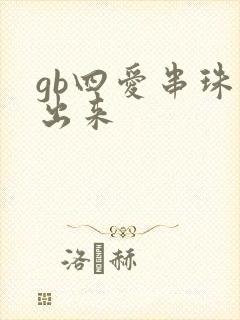 gb四愛串珠
出来
洛赫